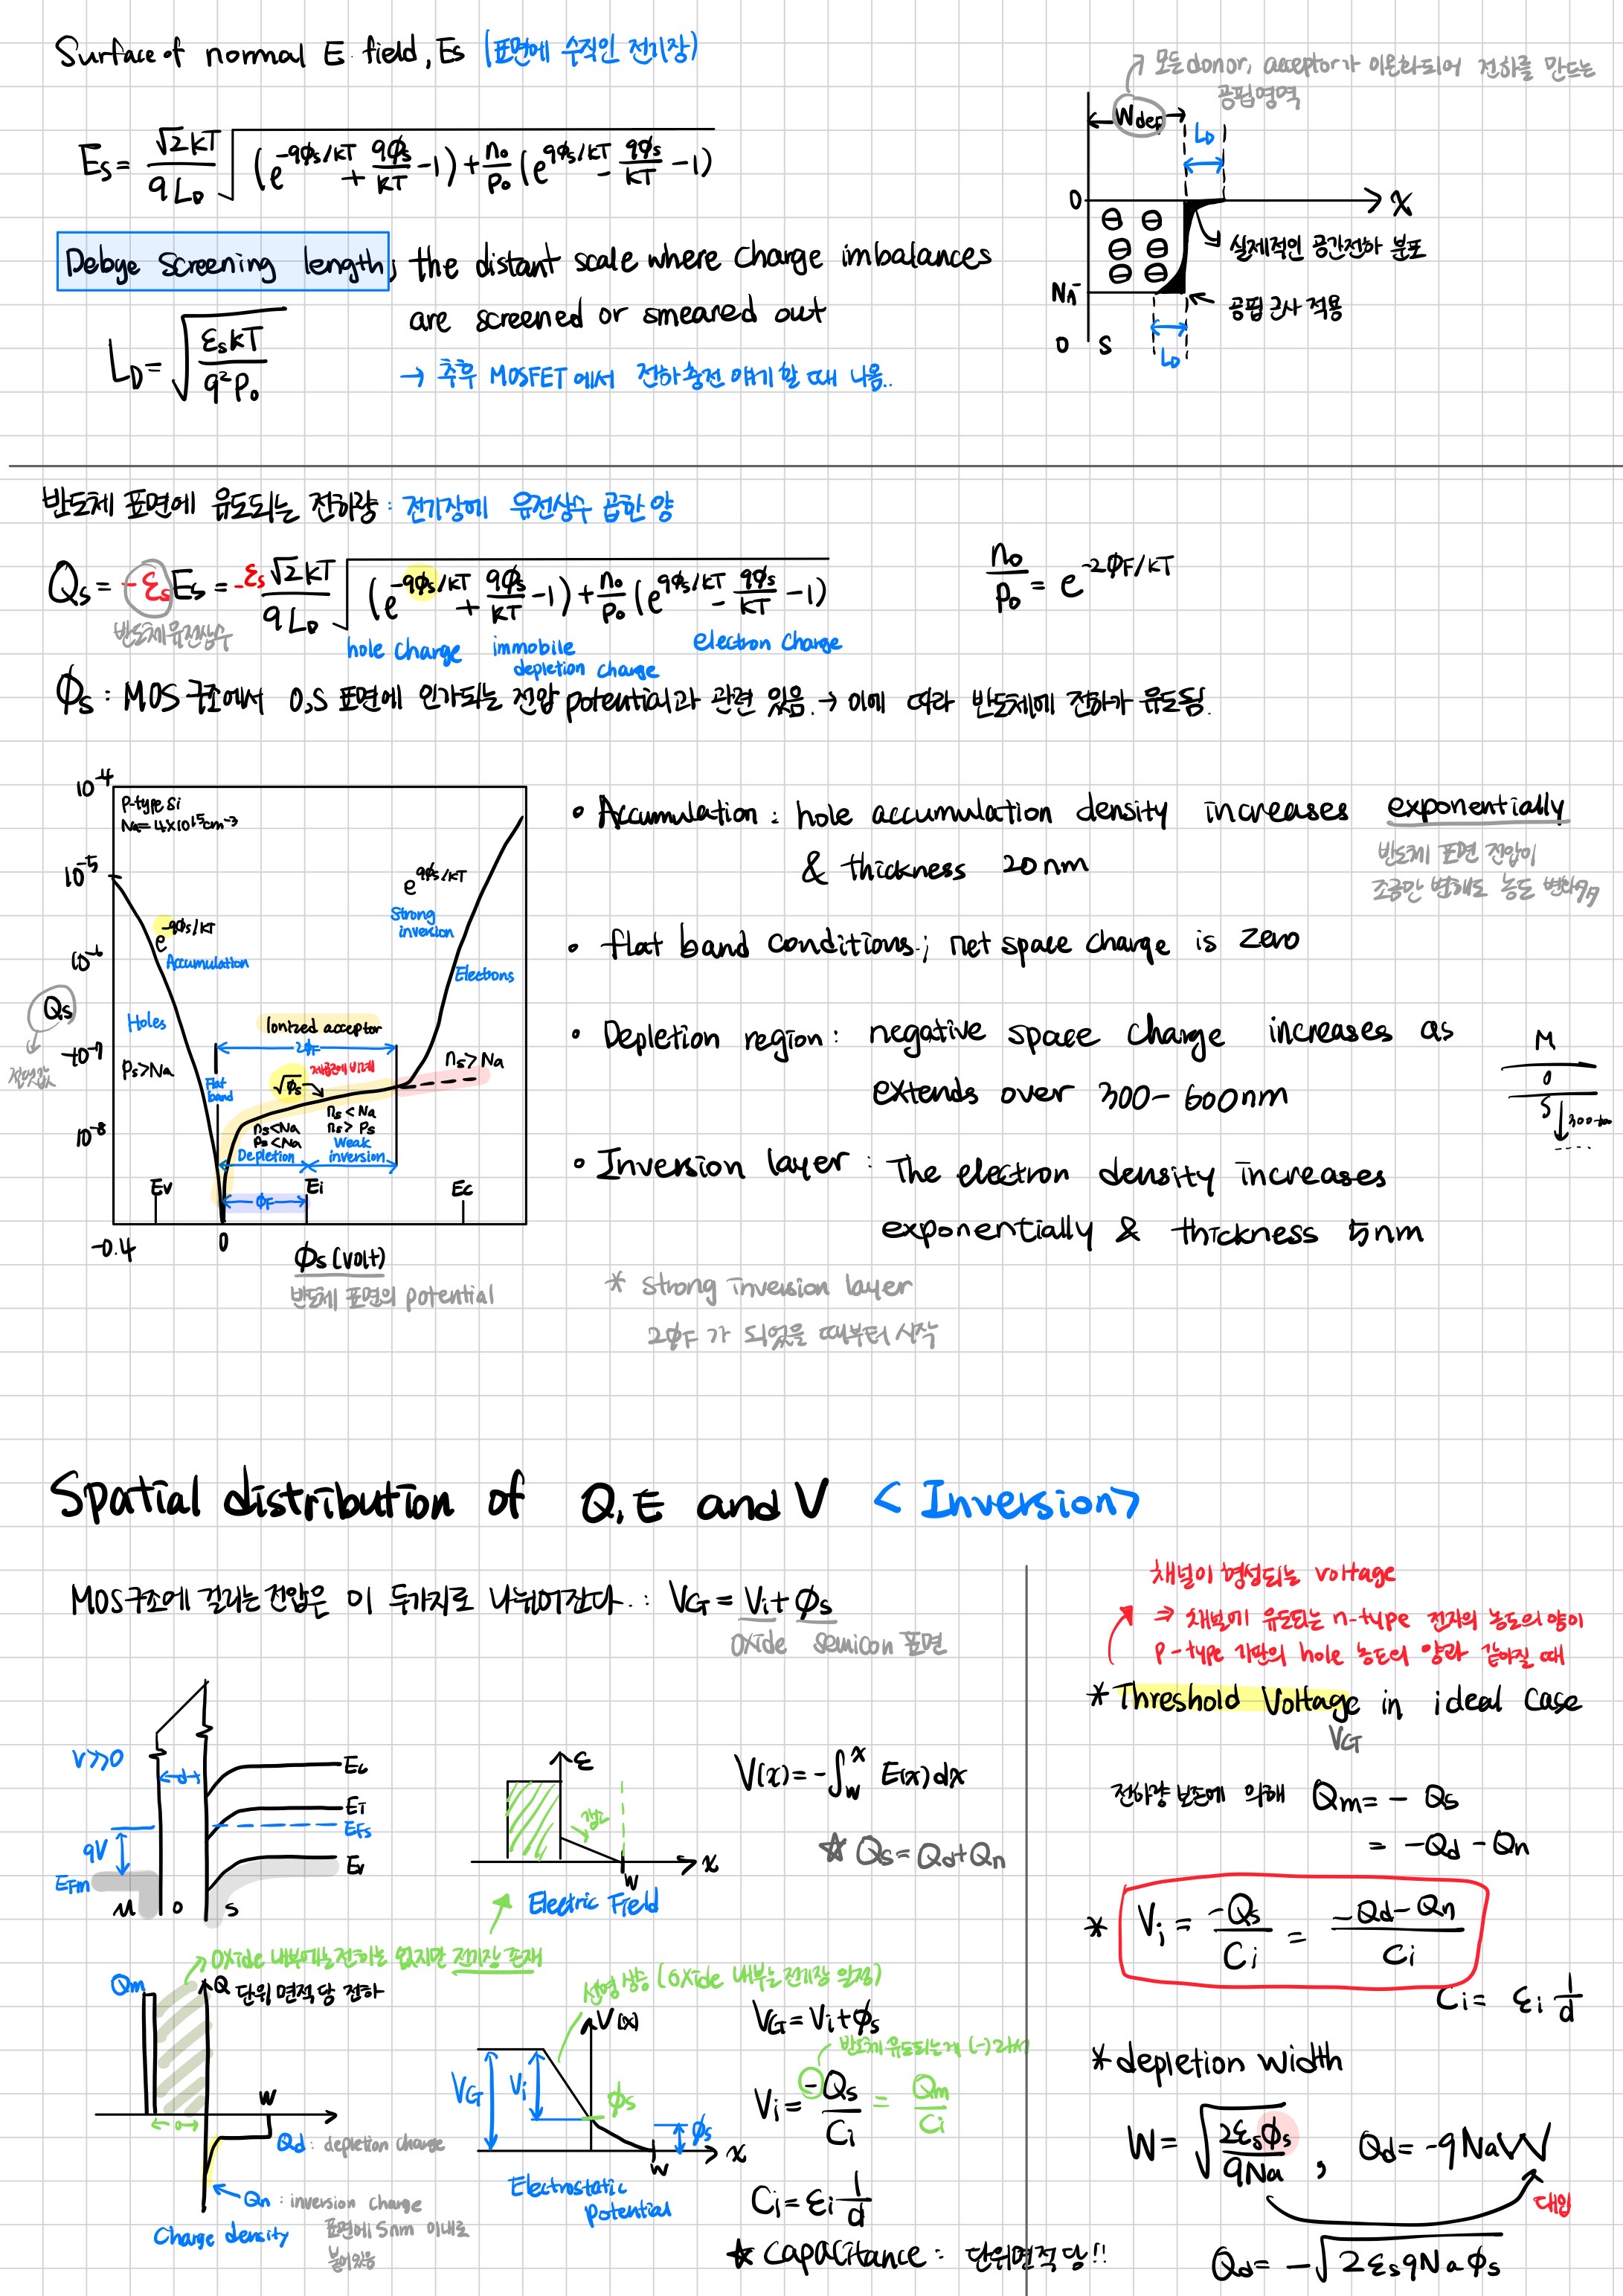 Surface of normal E field, Es (표면에 수직인 전기장)
Es = √2kT / qL_D √((e^(-qφs/kT) + qφs/kT - 1) + n₀/p₀ (e^(qφs/kT) - qφs/kT - 1))
Debye screening length; the distant scale where charge imbalances
are screened or smeared out
→ 추후 MOSFET에서 전하충전 얘기 할 때 나옴..
L_D = √(εskT / q²P₀)
모든 donor, acceptor가 이온화되어 전하를 만드는
공핍영역
Wdep
L_D
0
x
실제적인 공간전하 분포
Na⁻
공핍 근사 적용
O S
L_D
반도체 표면에 유도되는 전하량 : 전기장에 유전상수 곱한 양
Qs = -εsEs = -εs √2kT / qL_D √((e^(-qφs/kT) + qφs/kT - 1) + n₀/p₀ (e^(qφs/kT) - qφs/kT - 1))
n₀/p₀ = e^(-2φF/kT)
반도체유전상수
hole charge
immobile
depletion charge
electron charge
φs : MOS 구조에서 O,S 표면에 인가되는 전압 potential과 관련 있음. → 이에 따라 반도체에 전하가 유도됨.
10⁻⁴
P-type Si
Na = 4×10¹⁵cm⁻³
10⁻⁵
e^(qφs/kT)
Strong
inversion
e^(-qφs/kT)
Accumulation
10⁻⁶
Electrons
Qs
절댓값
Holes
Ionized acceptor
2φF
10⁻⁷
Ps>Na
Flat
band
√φs
제곱근에 비례
ns>Na
ns<Na
ps<Na
Depletion
ns<Na
ns>Ps
Weak
inversion
10⁻⁸
Ev
φF
Ei
Ec
-0.4
0
φs (volt)
반도체 표면의 potential
• Accumulation : hole accumulation density increases exponentially
& thickness 20nm
반도체 표면 전압이
조금만 변해도 농도 변화
• flat band conditions ; net space charge is zero
• Depletion region : negative space charge increases as
extends over 300-600nm
M
O
S
• Inversion layer : The electron density increases
exponentially & thickness 5nm
* Strong inversion layer
2φF가 되었을 때부터 시작
Spatial distribution of Q, E and V <Inversion>
MOS구조에 걸리는 전압은 이 두가지로 나뉘어진다. : VG = Vi + φs
Oxide semicon 표면
V≫0
d
Ec
Ei
EFs
qV
Ev
EFm
M O S
ε
감소
W
x
Electric Field
V(x) = -∫_W^x E(x)dx
☆ Qs = Qd+Qn
Oxide 내부에는 전하는 없지만 전기장 존재
Qm
Q 단위 면적 당 전하
W
Qd : depletion charge
Qn : inversion charge
표면에 5nm 이내로
붙어있음
Charge density
선형 상승 (Oxide 내부는 전기장 일정)
V(x)
VG
Vi
φs
φs
W
x
Electrostatic
potential
VG = Vi+φs
반도체 유도되는게 (-)라서
Vi = -Qs/Ci = Qm/Ci
Ci = εi 1/d
★ Capacitance : 단위면적 당!!
채널이 형성되는 voltage
⇒ 채널에 유도되는 n-type 전자의 농도의 양이
P-type 기판의 hole 농도의 양과 같아질 때
* Threshold Voltage in ideal case
VG
전하량 보존에 의해 Qm = - Qs
= -Qd - Qn
* Vi = -Qs/Ci = -Qd-Qn/Ci
Ci = εi 1/d
* depletion width
W = √(2εsφs / qNa), Qd = -qNaW
대입
Qd = -√(2εsqNaφs)